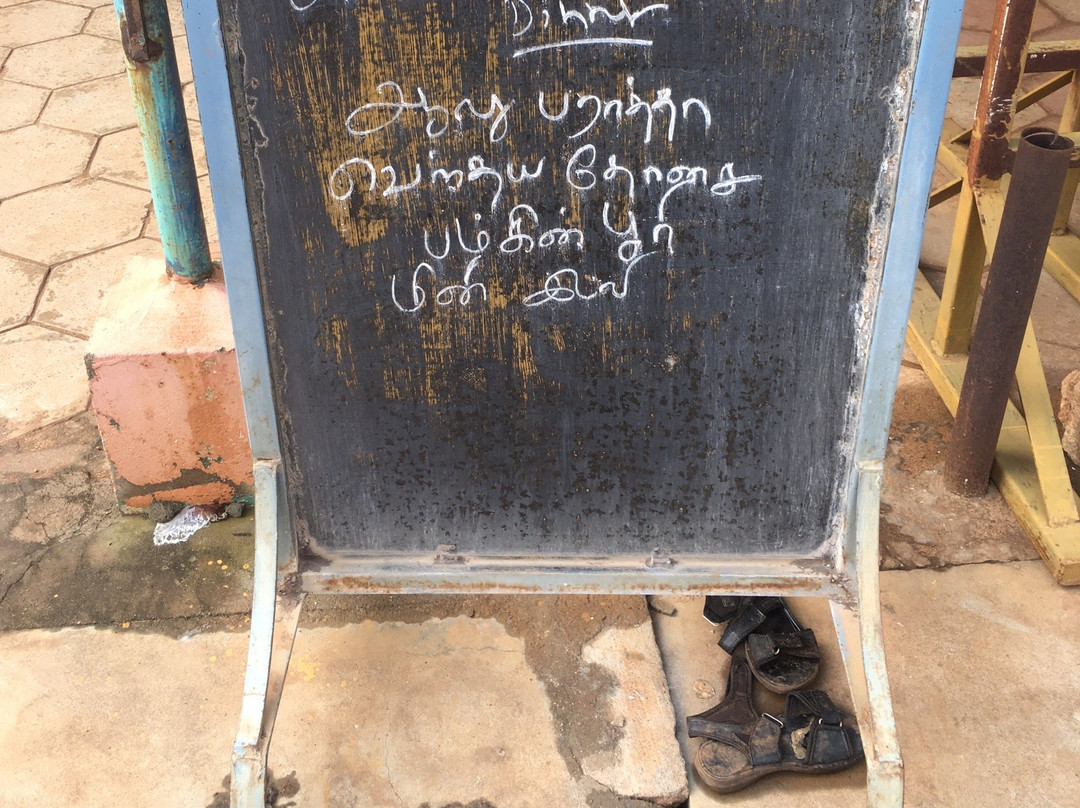 Dinner
ஆலு பராத்தா
வெந்தய தோசை
பம்கின் பூரி
மினி இட்லி